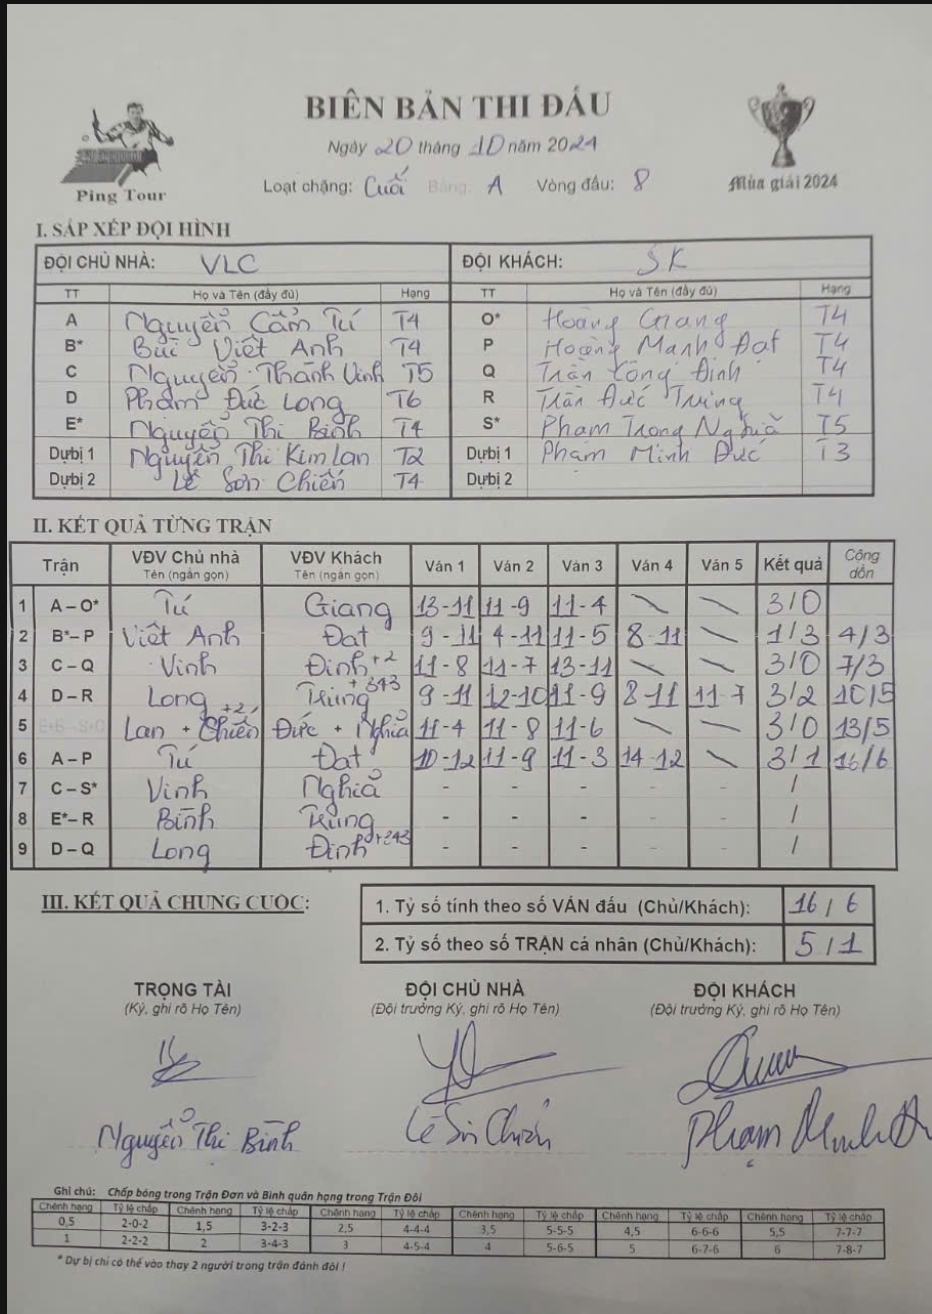 BIÊN BẢN THI ĐẤU
Ngày 20 tháng 10 năm 2024
Loạt chặng: Cuối Bảng: A Vòng đấu: 8
Ping Tour
Mùa giải 2024
I. SẮP XẾP ĐỘI HÌNH
ĐỘI CHỦ NHÀ: VLC ĐỘI KHÁCH: SK
TT Họ và Tên (đầy đủ) Hạng TT Họ và Tên (đầy đủ) Hạng
A Nguyễn Cẩm Tú T4 O* Hoàng Giang T4
B* Bùi Viết Anh T4 P Hoàng Mạnh Đạt T4
C Nguyễn Thành Vinh T5 Q Trần Công Định T4
D Phạm Đức Long T6 R Trần Đức Trung T4
E* Nguyễn Thi Bình T4 S* Phạm Trọng Nghĩa T5
Dự bị 1 Nguyễn Thi Kim Lan T2 Dự bị 1 Phạm Minh Đức T3
Dự bị 2 Lê Sơn Chiến T4 Dự bị 2
II. KẾT QUẢ TỪNG TRẬN
Trận VĐV Chủ nhà VĐV Khách Ván 1 Ván 2 Ván 3 Ván 4 Ván 5 Kết quả Cộng dồn
Tên (ngắn gọn) Tên (ngắn gọn)
1 A – O* Tú Giang 13-11 11-9 11-4 3/0
2 B* – P Viết Anh Đạt 9-11 4-11 11-5 8-11 1/3 4/3
3 C – Q Vinh Định +2 11-8 11-7 13-11 3/0 7/3
4 D – R Long Trung +343 9-11 12-10 11-9 8-11 11-7 3/2 10/5
5 Lan + Chiến +2 Đức + Nghĩa 11-4 11-8 11-6 3/0 13/5
6 A – P Tú Đạt 10-12 11-9 11-3 14-12 3/1 16/6
7 C – S* Vinh Nghĩa - - - - - /
8 E* – R Bình Trung - - - - - /
9 D – Q Long Định +243 - - - - - /
III. KẾT QUẢ CHUNG CUỘC:
1. Tỷ số tính theo số VÁN đấu (Chủ/Khách): 16 / 6
2. Tỷ số theo số TRẬN cá nhân (Chủ/Khách): 5 / 1
TRỌNG TÀI ĐỘI CHỦ NHÀ ĐỘI KHÁCH
(Ký, ghi rõ Họ Tên) (Đội trưởng Ký, ghi rõ Họ Tên) (Đội trưởng Ký, ghi rõ Họ Tên)
Nguyễn Thi Bình Lê Sơn Chiến Phạm Minh
Ghi chú: Chấp bóng trong Trận Đơn và Bình quân hạng trong Trận Đôi
Chênh hạng Tỷ lệ chấp Chênh hạng Tỷ lệ chấp Chênh hạng Tỷ lệ chấp Chênh hạng Tỷ lệ chấp Chênh hạng Tỷ lệ chấp Chênh hạng Tỷ lệ chấp
0,5 2-0-2 1,5 3-2-3 2,5 4-4-4 3,5 5-5-5 4,5 6-6-6 5,5 7-7-7
1 2-2-2 2 3-4-3 3 4-5-4 4 5-6-5 5 6-7-6 6 7-8-7
* Dự bị chỉ có thể vào thay 2 người trong trận đánh đôi !